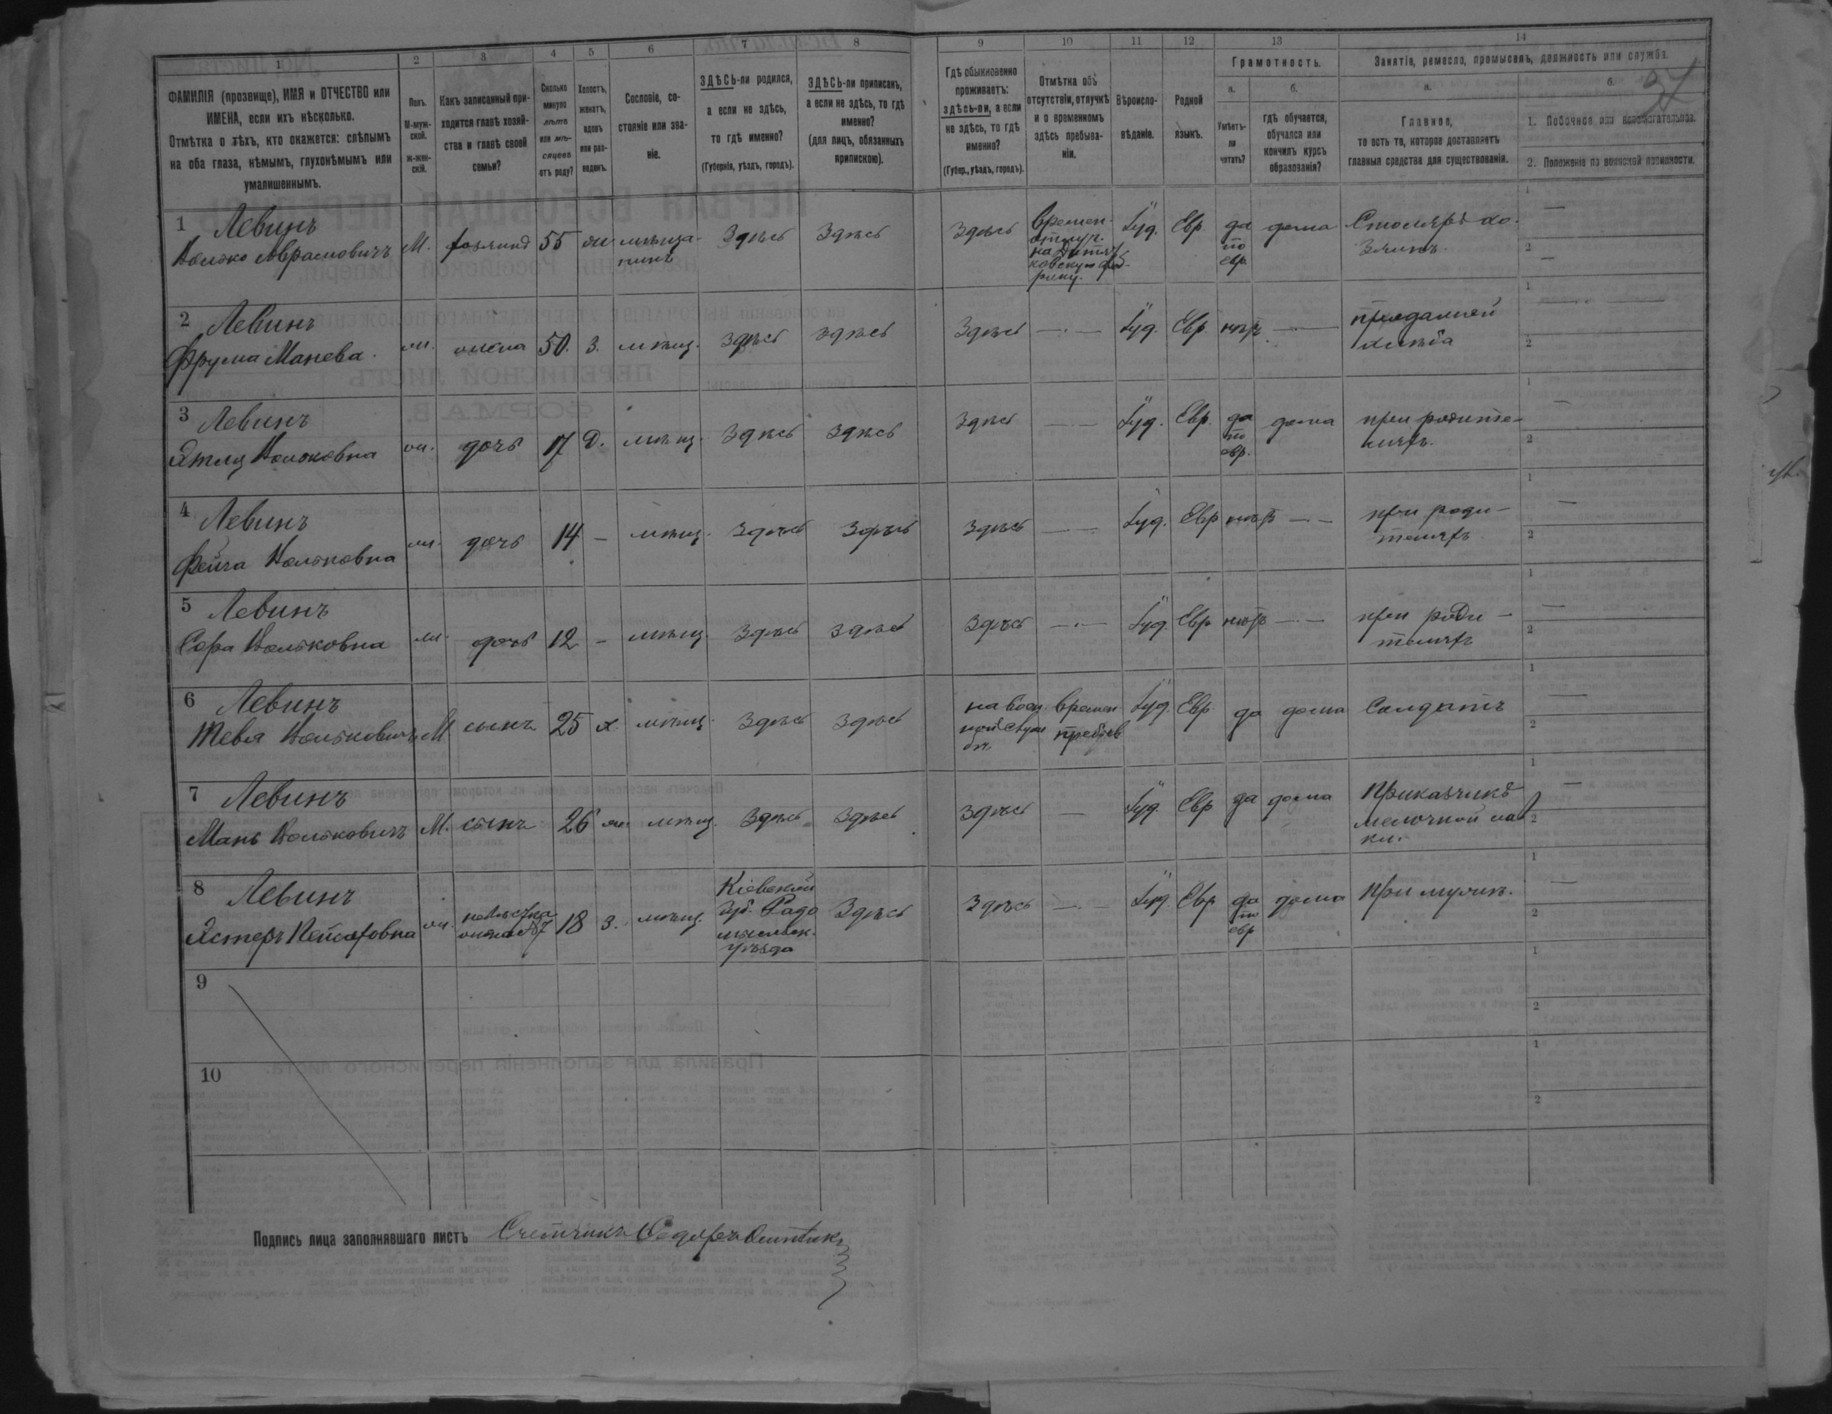 1 2 3 4 5 6 7 8 9 10 11 12 13 14
ФАМИЛІЯ (прозвище), ИМЯ и ОТЧЕСТВО или
ИМЕНА, если ихъ нѣсколько.
Отмѣтка о тѣхъ, кто окажется: слѣпымъ
на оба глаза, нѣмымъ, глухонѣмымъ или
умалишеннымъ.
Полъ.
М-муж-
ской.
ж-жен-
скій.
Какъ записанный при-
ходится главѣ хозяй-
ства и главѣ своей
семьи?
Сколько
минуло
лѣтъ
или мѣ-
сяцевъ
отъ роду?
Холостъ,
женатъ,
вдовъ
или раз-
веденъ.
Сословіе, со-
стояніе или зва-
ніе.
ЗДѢСЬ-ли родился,
а если не здѣсь,
то гдѣ именно?
(Губернія, уѣздъ, городъ).
ЗДѢСЬ-ли приписанъ,
а если не здѣсь, то гдѣ
именно?
(для лицъ, обязанныхъ
припискою).
Гдѣ обыкновенно
проживаетъ:
здѣсь-ли, а если
не здѣсь, то гдѣ
именно?
(Губер., уѣздъ, городъ).
Отмѣтка объ
отсутствіи, отлучкѣ
и о временномъ
здѣсь пребыва-
ніи.
Вѣроиспо-
вѣданіе.
Родной
языкъ.
Грамотность.
а.
Умѣетъ-
ли
читать?
б.
гдѣ обучается,
обучался или
кончилъ курсъ
образованія?
Занятіе, ремесло, промыселъ, должность или служба.
а.
Главное,
то есть то, которое доставляетъ
главныя средства для существованія.
б.
1. Побочное или вспомогательное.
2. Положеніе по воинской повинности.
1 Левинъ
Волько Абрамовичъ М. хозяинъ 55 ж мѣща-
нинъ Здѣсь Здѣсь Здѣсь Времен.
Іуд. Евр. да
по
евр. дома Столяръ хо-
зяинъ.
2 Левинъ
Фрума Манева. ж. жена 50. З. мѣщ. Здѣсь Здѣсь Здѣсь — Іуд. Евр. нѣтъ —
хлѣба
3 Левинъ
Вольковна ж. дочь 17 Д. мѣщ. Здѣсь Здѣсь Здѣсь — Іуд. Евр. да
по
евр. дома при родите-
ляхъ.
4 Левинъ
Фейга Вольковна ж. дочь 14 — мѣщ. Здѣсь Здѣсь Здѣсь — Іуд. Евр нѣтъ — при роди-
теляхъ
5 Левинъ
Сора Вольковна ж. дочь 12 — мѣщ. Здѣсь Здѣсь Здѣсь — Іуд Евр нѣтъ — при роди-
теляхъ
6 Левинъ
Тевя Вольковичъ М сынъ 25 х. мѣщ. Здѣсь Здѣсь на воен
ной служ
бѣ. времен
Іуд. Евр. да дома Солдатъ
7 Левинъ
Мань Вольковичъ М. сынъ 26 ж мѣщ. Здѣсь Здѣсь Здѣсь — Іуд. Евр да дома Приказчикъ
мелочной лав
ки.
8 Левинъ
Эстеръ ж. невѣстка
18 з. мѣщ. Кіевской
губ. Радо
мысльск.
уѣзда Здѣсь Здѣсь — Іуд. Евр да
по
евр дома При мужѣ.
9
10
Подпись лица заполнявшаго листъ Счетчикъ